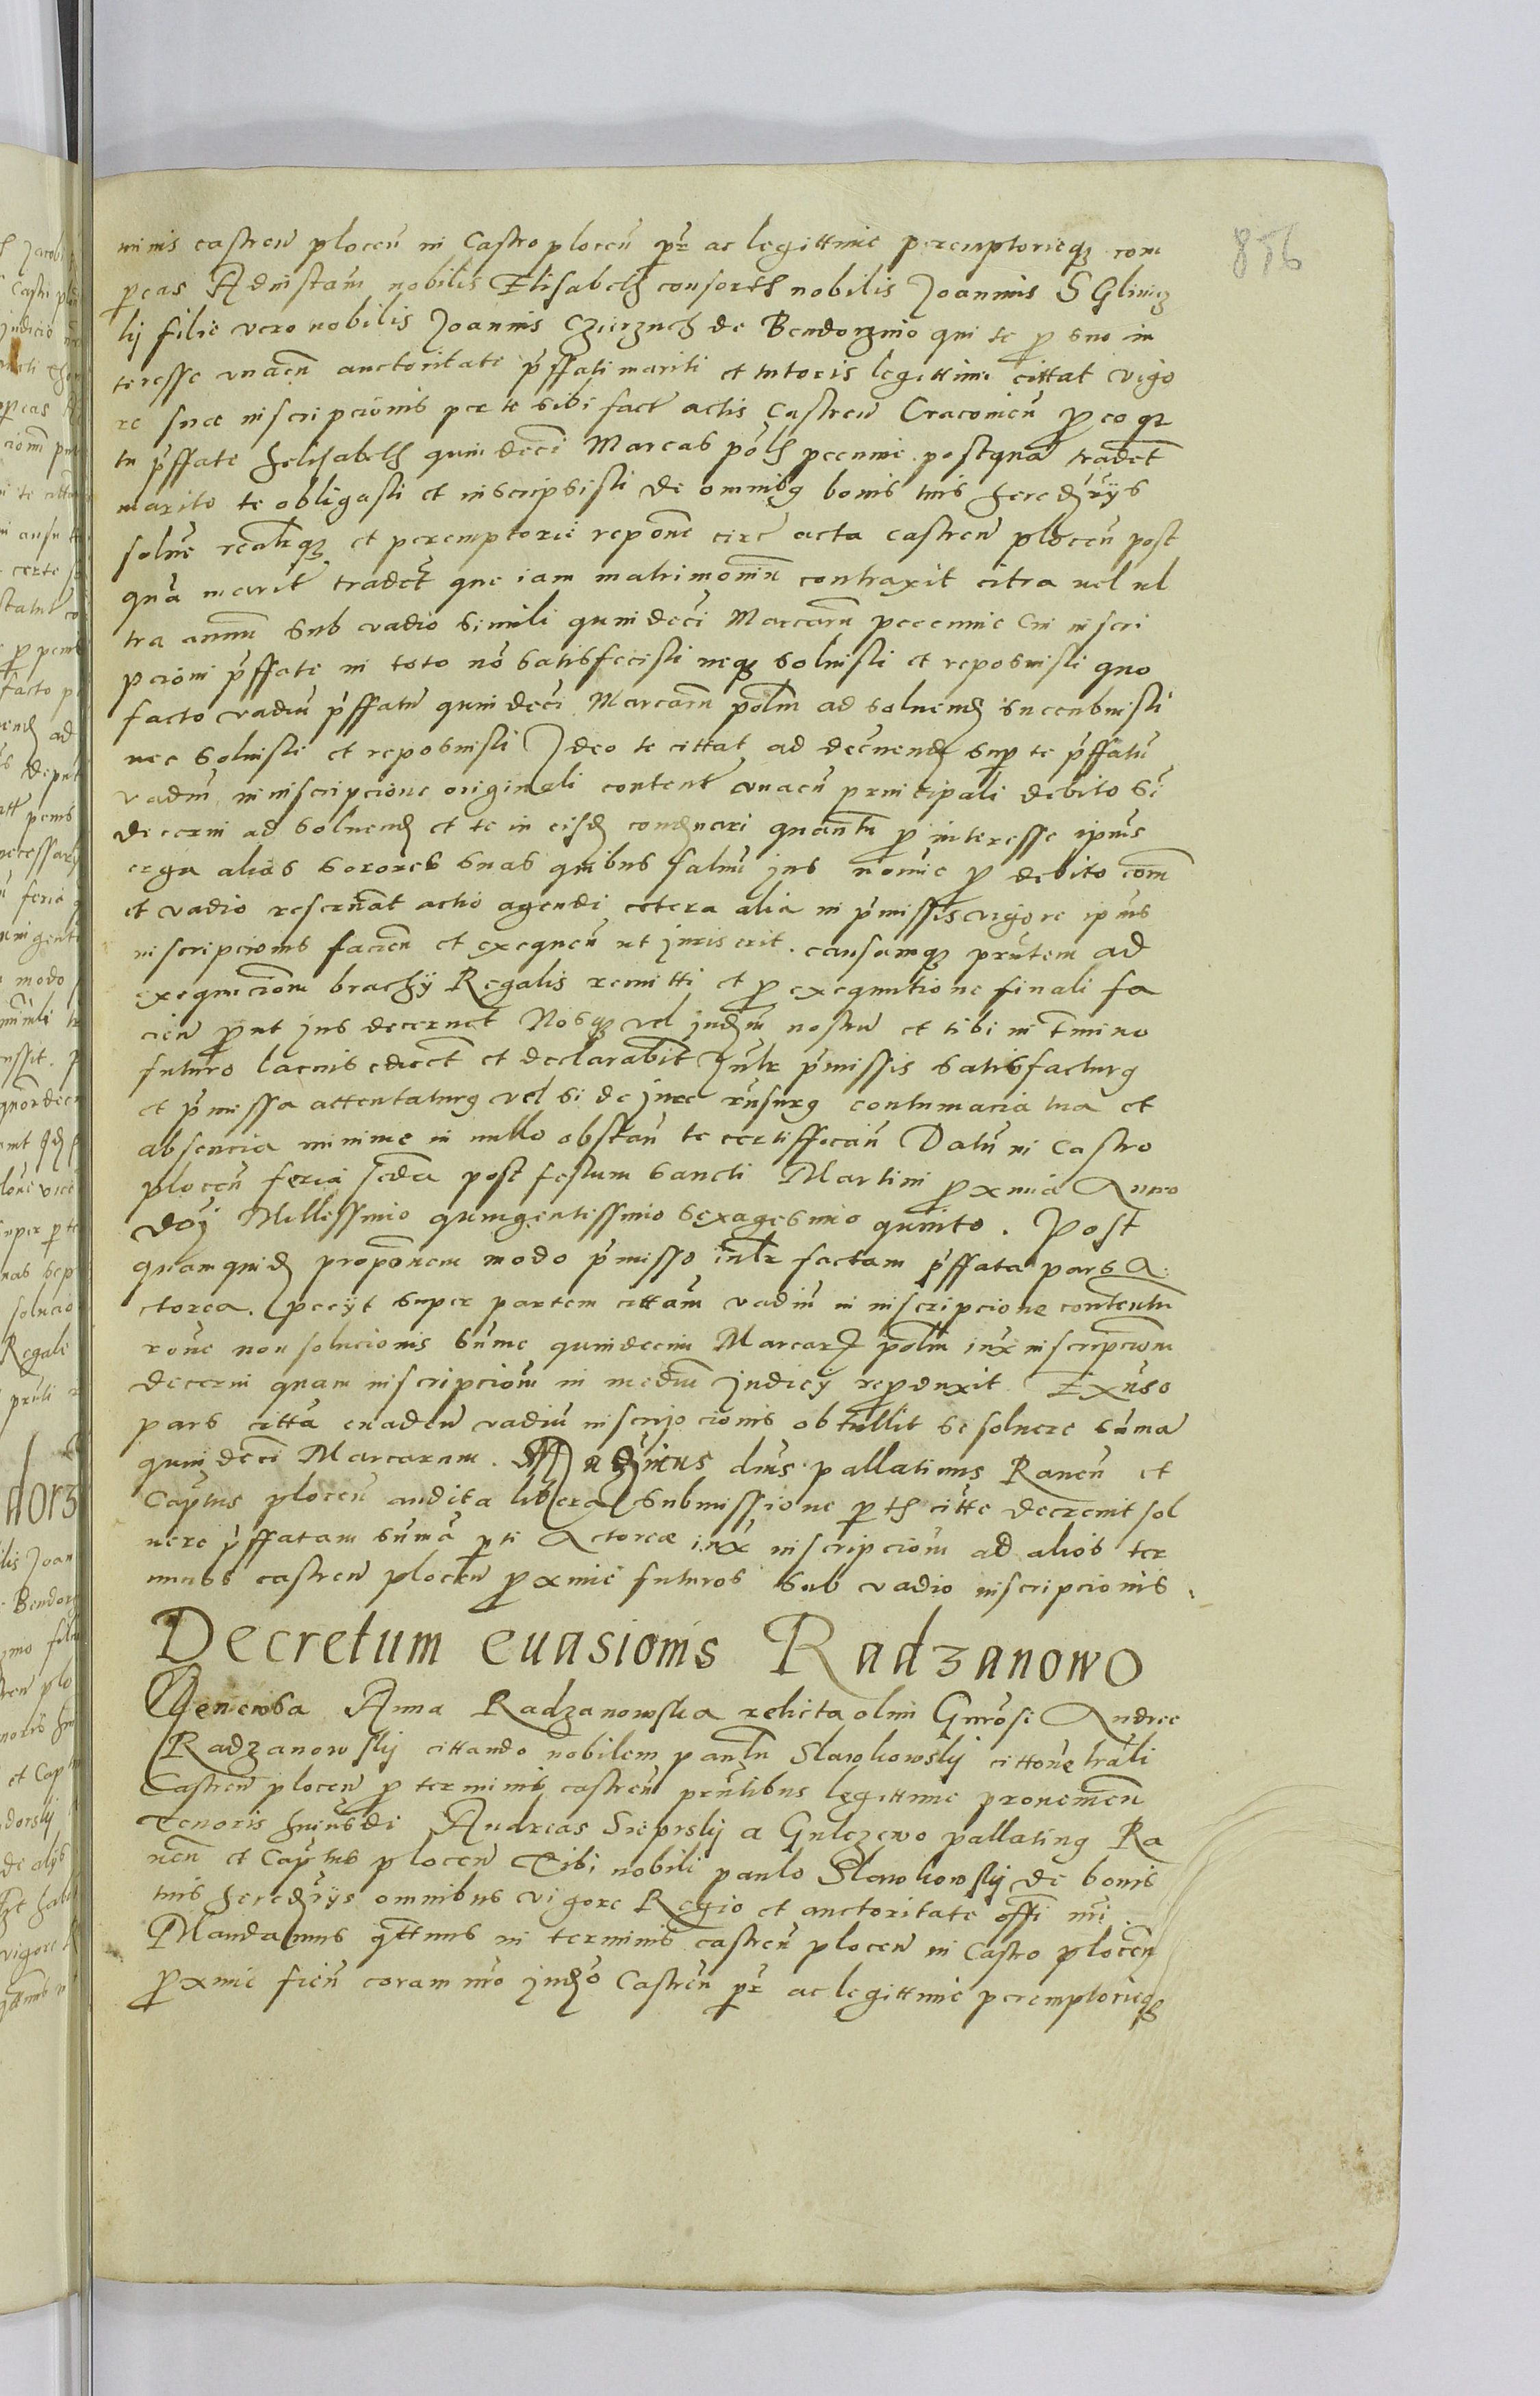 856
minis castren plocen in Castro plocen pr ac legittime peremptorieqz com
pareas Ad instam nobilis Elisabeth consortis nobilis Joannis S Glinicz
kj filie vero nobilis Joannis Czierznch de Bendorzino qui te pro suo in
teresse vnacu auctoritate pffati mariti et tutoris legittimi cittat vigo
re suae inscripcionis per te sibi fact actis Castren Cracovien pro eo qz
tu pffate helisabeth quindeci Marcas polh pecunie postqua tradet
marito te obligasti et inscripsisti de omnibq bonis tuis heredrijs
solue realitqz et peremptorie repone circ acta castren plocen post
qua marit tradet que iam matrimoniu contraxit citra uel ul
tra annu sub vadio simili quindeci Marcaru peccunie Cui inscri
pcioni pffate in toto no satisfecisti neqz soluisti et reposuisti quo
facto vadiu pffatu quindeci Marcaru polm ad soluend succubuisti
nec soluisti et reposuisti Ideo te cittat ad decernend sup te pffatu
vadiu in inscripcione originali content vnacu principali debito si
decerni ad soluend et te in eisd condnari quantu pro interesse ipius
erga alias sorores suas quibus saluu jus nomie pro debito com
et vadio reseruat actio agendi cetera alia in pmissis vigore ipius
inscripcionis facien et exequen ut juris erit. causamqz pntem ad
exequucionem brachij Regalis remitti et pro exequutione finali fa
cien prout jus decernet Nosqz vel judm nostru et tibi in tmino
futuro lacius edicet et declarabit Jnlr pmissis satisfacturq
et pmissa attentaturq vel si de jure rnsurq contumacia tua et
absencia minime in nullo obstan te certiffican Datu in Castro
plocen feria scda post festum Sancti Martini proxima Anno
doj Millessimo quingentessimo sexagesimo quinto. Post
quamquid proponem modo pmisso inlr factam pffata pars A
ctorea. pecijt super partem cittam vadiu in inscripcione contentu
rone non solucionis sume quindecim Marcarz polm iux inscripcionm
decerni quam inscripciom in mediu Judicij reproduxit Exnso
pars citta euaden vadiu inscripcionis obtullit se soluere suma
quindeci Marcarum. Magnicus dns pallatinus Rauen et
Captus plocen audita libera submissione partis citte decreuit sol
uere pffatam suma parti Actoreae iux inscripciom ad alios ter
minos castren plocen proxime futuros sub vadio inscripcionis.
Decretum euasionis Radzanowo
Generosa Anna Radzanowska relicta olim Gnrosi Andree
Radzanowskj cittando nobilem paulu Slawkowskj cittone trali
Castren plocen pro terminis castren pntibus legittime prouenien
Tenoris huiusdi Andreas Sieprskj a Gulczewo pallatinq Ra
uen et Captus plocen Tibi nobili paulo Slawkowskj de bonis
tuis heredrijs omnibus vigore Regio et auctoritate offi nri
Mandamus qttnus in terminis castren plocen in Castro plocen
proxime fien coram nro judo Castren pr ac legittime peremptorieqz